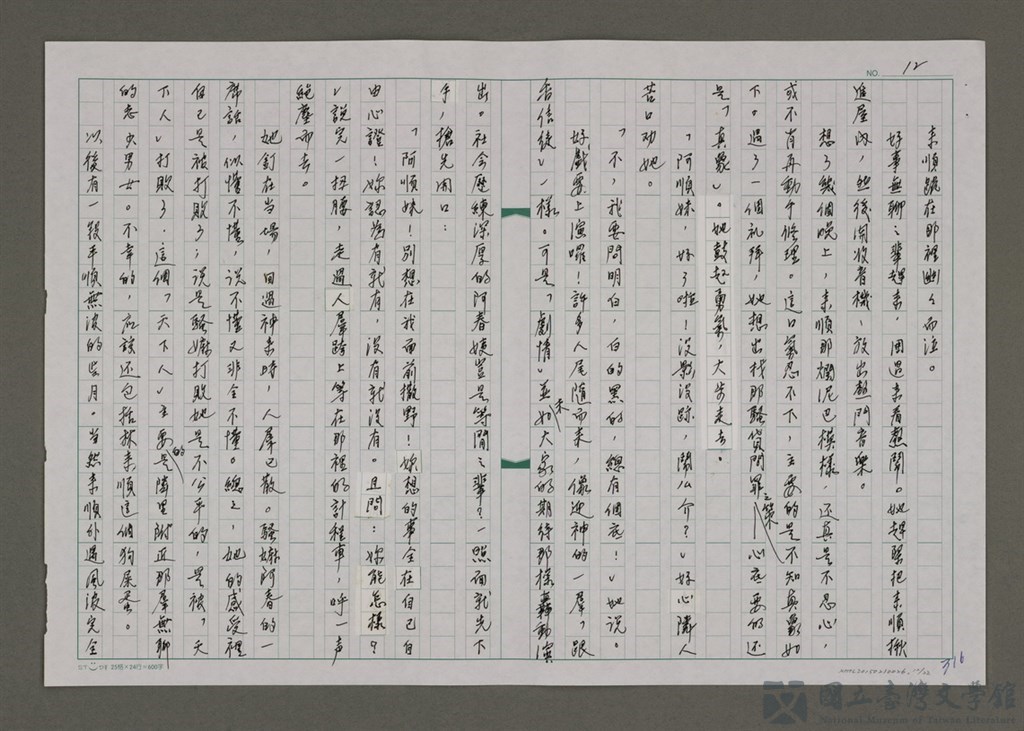 NO. 12
來順跪在那裡幽幽而泣。
好事無聊之輩趕來,圍過來看熱鬧。她趕緊把來順揪
進屋內,然後開收音機,放出熱門音樂。
想了幾個晚上,來順那爛泥巴模樣,還真是不忍心,
或不有再動手修理。這口氣忍不下,主要的是不知真象如
下。過了一個礼拜,她想出找那騷貨問罪之策—心底要的還
是「真象」。她鼓起勇氣,大步走去。
「阿順妹,好了啦!沒影沒跡,鬧么介?」好心隣人
苦口劝她。
「不,我要問明白,白的黑的,總有個底!」她說。
好戲要上演囉!許多人尾隨而來,像迎神的一羣「跟
香信徒」一樣。可是「劇情」並未如大家的期待那樣轟動演
出。社会歷練深厚的阿春嫂豈是等閒之輩?一照面就先下
手,搶先開口:
「阿順妹!別想在我面前撒野!妳想的事全在自己白
由心證!妳認為有就有,沒有就沒有。且問:妳能怎樣?
」說完一扭腰,走過人羣跨上等在那裡的計程車,呼一声
絕塵而去。
她釘在当場,回過神來時,人羣已散。騷嫲阿春的一
席話,似懂不懂,說不懂又非全不懂。總之,她的感受裡
自己是被打敗了;說是騷嫲打敗她是不公平的,是被「天
下人」打敗了.這個「天下人」主要的是隣里附近那羣無聊
的老少男女。不幸的,應該还包括林來順這個狗屎蛋。
以後有一段平順無波的歲月。当然來順外遇風波完全
25格×24行=600字
316
國立臺灣文學館
National Museum of Taiwan Literature